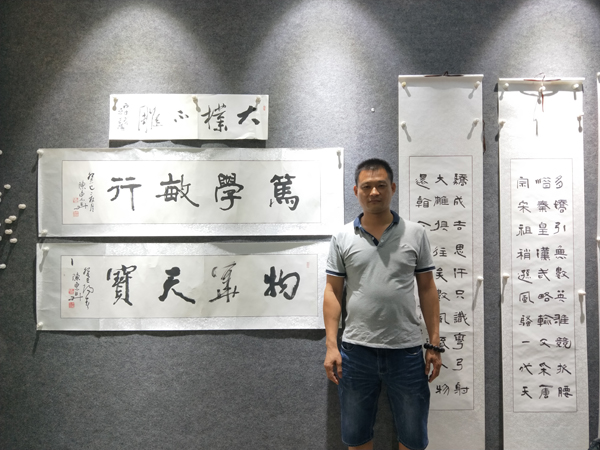 大樸不雕
篤學敏行
物華天寶
多嬌引無數英雄競折腰
惜秦皇漢武略輸文采唐
宗宋祖稍遜風騷一代天
驕成吉思汗只識彎弓射
大雕俱往矣數風流人物
還看今